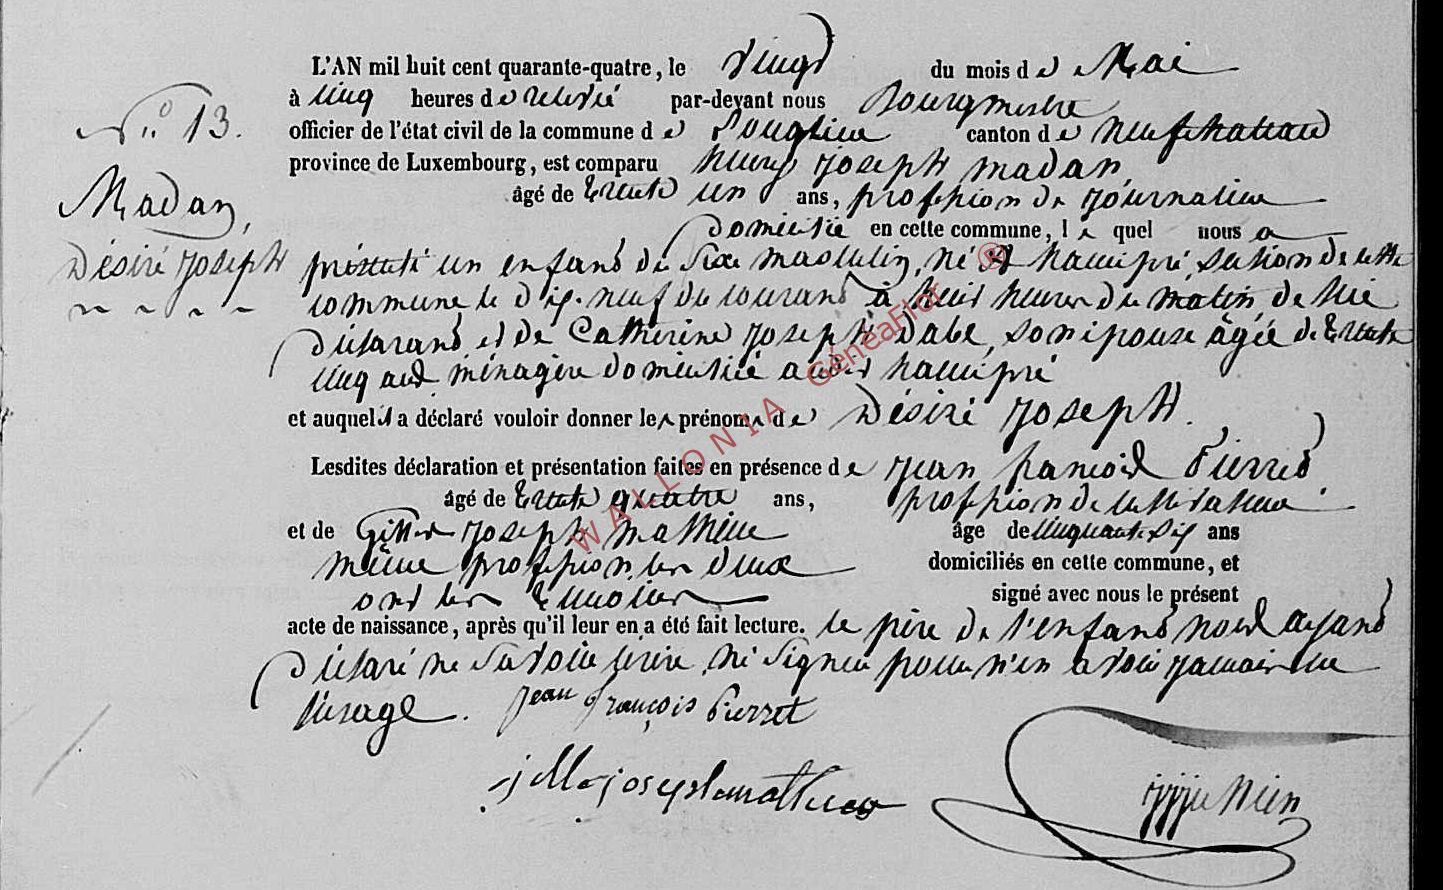 N° 13.
Madan,
Désiré Joseph
L'AN mil huit cent quarante-quatre, le vingt du mois de Mai
à cinq heures de relevé par-devant nous Bourgmestre
officier de l'état civil de la commune de Longlier canton de neufchateau
province de Luxembourg, est comparu henry joseph madan,
âgé de trente un ans, profession de journalier
domicilié en cette commune, le quel nous a
présenté un enfant du sexe masculin, né à hamipré, section de cette
commune le dix-neuf du courant à huit heures du matin de lui
déclarant et de Catherine joseph Dabe, son épouse âgée de trente
cinq ans ménagère domicilié audit hamipré
et auquel il a déclaré vouloir donner les prénoms de Désiré joseph.
Lesdites déclaration et présentation faites en présence de jean francois Pierret
âgé de trente quatre ans, profession de cultivateur
et de joseph mathieu âgé de cinquante six ans
même profession, les deux domiciliés en cette commune, et
ont les témoins signé avec nous le présent
acte de naissance, après qu'il leur en a été fait lecture. le père de l'enfant nous ayant
déclaré ne savoir écrire ni signer pour n'en avoir jamais eu
l'usage.
jean françois Pierret
joseph mathieu
WALLONIA GénéaFlor ®